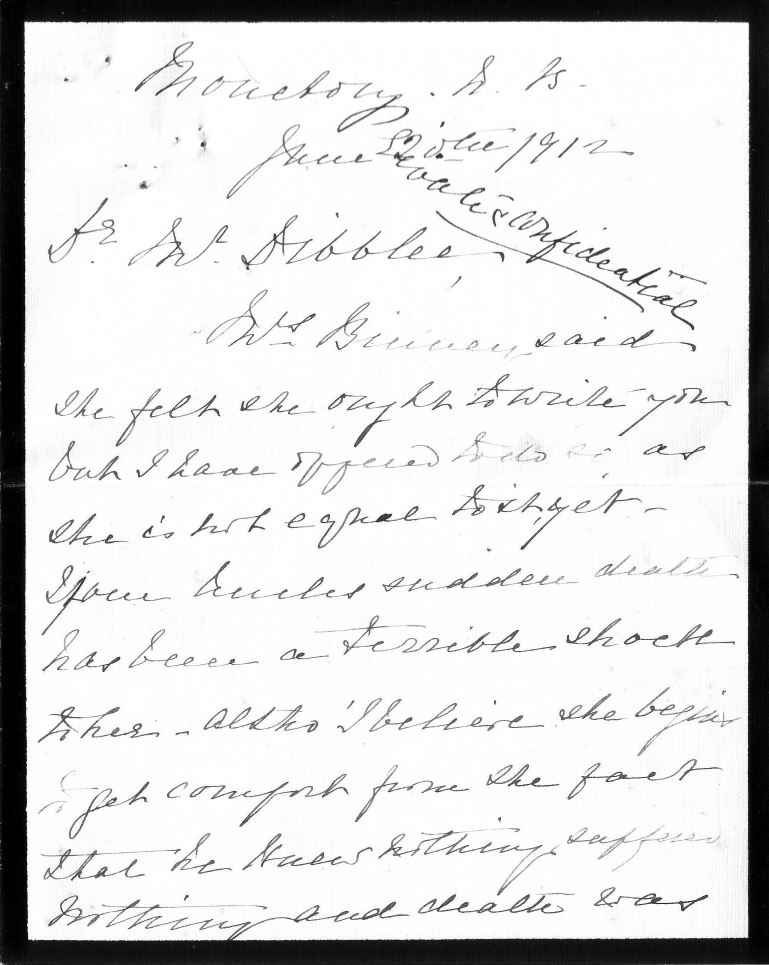 Moncton, N. B.
June 20th 1912
Private & confidential
Dr. Mr. Dibblee,
Mrs. Binney, said
she felt she ought to write you
but I have offered to do so, as
she is not equal to it, yet –
Your Uncles sudden death
has been a terrible shock
to her – altho' I believe she begins
to get comfort from the fact
that he knew nothing, suffered
nothing and death was